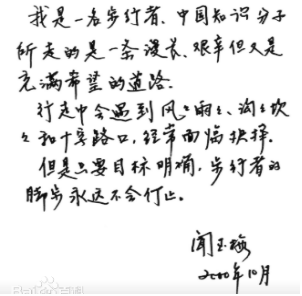 我是一名步行者、中国知识分子
所走的是一条漫长、艰辛但又是
充满希望的道路.
行走中会遇到风风雨雨、沟沟坎
坎和十字路口，经常面临抉择.
但是只要目标明确，步行者的
脚步永远不会停止。
闻玉梅
2000年10月
Baidu百科